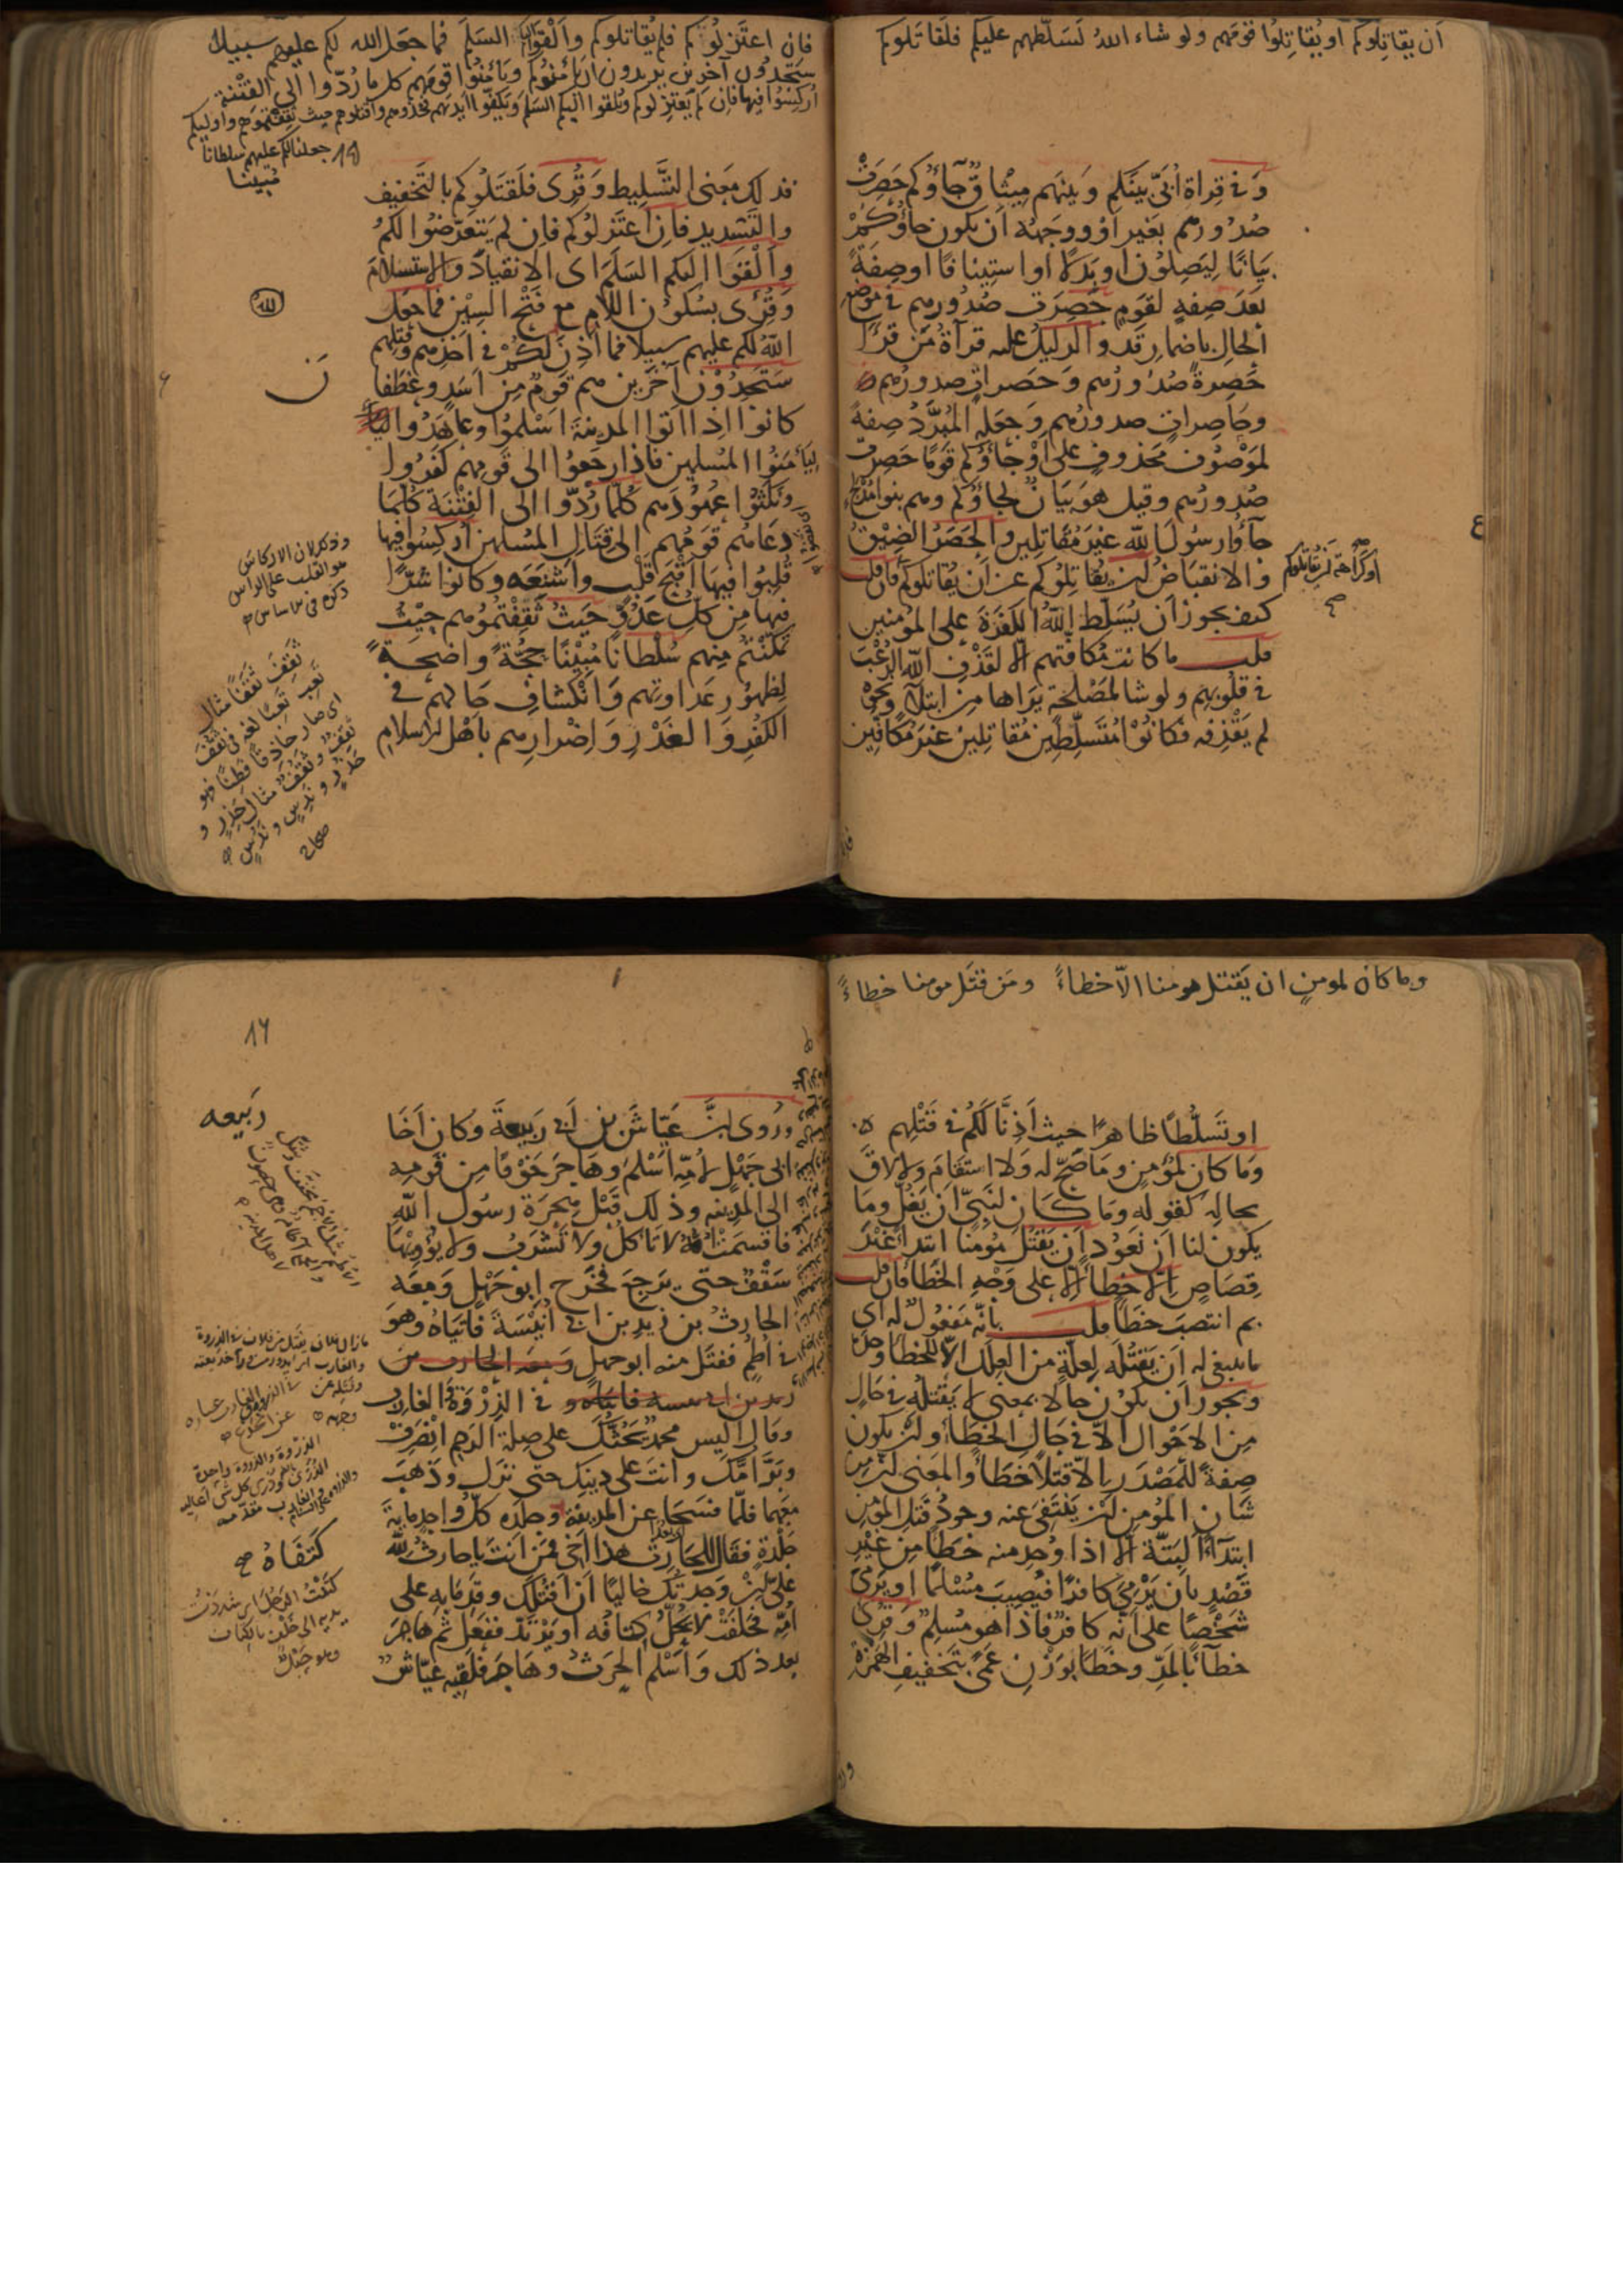 أن يقاتلوكم او يُقاتِلوُا قومهم ولو شاء اللهُ لَسَلّطهم عليكم فلَقاتَلوكم
وَفى قِراة اُبَىّ بينكم وبَينَهم مِيْثاقٌ جآؤكم حَصِرَتْ
صُدُورهم بغَير اَوْ ووَجهُه ان يكون جاؤكُمْ
بيَانًا لِيَصِلوُن او بَدَلًا او استِينافًا او صِفَةً
بَعدَ صِفةٍ لقومٍ حَصِرَت صُدُورهم فى موَضع
الحال باضمار قد والدليلُ عليه قرآةُ مَن قرَأ
حَصِرةً صُدُورُهم وَحَصراتٍ صدورُهم
وحَاصِراتٍ صدورُهم وجَعَله المُبَرَّدُ صِفةً
لموَصُوف محَذوفٍ على اَوْ جاؤكم قَومًا حَصِرَت
صُدورُهم وقيل هوَ بيَانٌ لجاؤكم وهم بنوا مُدْلج
جآؤا رسُولَ الله غيرَ مُقاتلين والحَصَرُ الضِيْقُ
والانقباضُ اَن يُقاتِلوُكم عن اَن يُقاتلوكم فان قلت
كيفَ يجوز اَن يُسَلِّط اللهُ الكفَرَةَ على المؤمنين
قلت ما كانت مُكافّتهم الا لقَذْفِ الله الرُعْبَ
فى قلوُبهم ولو شا لمصْلحةٍ يَراها من ابتلآٍ ونحوِه
لم يَقْذِفه فكانوُا مُتَسلِّطين مُقاتِلين غيرَ مُكافّين
او كراهة اَن يُقاتلوكم
صح
فان اعتَزلوُكم فلم يُقاتلوكم وَاَلْقَوا اليكم السَلَمَ فما جعَل الله لكم عليهم سبيلا
سَتجِدُون آخرين يريدون ان يَأمَنوُكم ويَأمَنوُا قومَهم كل ما رُدّوا الى الفتْنة
اُركِسُوا فيها فان لم يَعتَزِلوكم ويُلقوا اليكم السَلَم ويكفّوا ايديَهم فخذوهم واقتلوهم حيث ثقِفتموهم واوليكم
جعلنا لكم عليهم سلطانا
مُبينا
فذلك مَعنى التَّسْليط وَقُرِى فلَقتَلُوكم بالتَخفيف
والتَشديد فان اعتَزلوُكم فان لم يَتعَرّضُوا لكم
وَاَلْقَوا اليكم السَلَمَ اى الانقيادَ والاستِسْلامَ
وَقُرِى بسُكوُن اللام مع فَتْح السِيْن فما جعَل
اللهُ لكم عليهم سبيلا فما اَذِنَ لكُمْ فى اَخذِهم وقتلِهم
سَتَجِدُوْن آخَرين هم قَومٌ مِن اَسَدٍ وغطَفان
كانوُا اذا اتوُا المدينة اَسْلموُا وعاهَدُوا
ليَأمَنوُا المسُلمين فاذا رجَعوُا الى قومهم كفَرُوا
ونكثوُا عهُودَهم كُلّما رُدّوا الى الفِتْنَة كلّمَا
دعَاهُم قومُهم الى قِتَال المُسْلمين اُركِسُوا فيها
قُلِبُوا فيها اَقْبَحَ قَلْبٍ واَشنَعَه وكانوا شَرًّا
فيها مِن كلِّ عَدُوٍّ حَيثُ ثَقِفْتمُوُهم حَيْثُ
تمكّنْتُم مِنهم سُلْطانًا مُبيْنًا حجّةً واضِحَةً
لِظهُوُر عَداوتهم وَانكشافِ حَالهم فى
الكُفرِ وَالغَدْر وَاِضْرارِهم باَهْل الاسلام
وذكر ان الاركاس
هو القلب على الراس
ثَقِفَ ثَقَفًا مثال
تَعِبَ تَعَبًا لغة فى ثَقُفَ
اى صار حاذقًا فطِنًا فهو
ثَقِفٌ وثَقُفٌ مثال حَذِرٍ و
حَذُرٍ ونَدِسٍ ونَدُسٍ
صحاح
وما كان لمومنٍ ان يَقتل مومنا الّا خطاءً ومَن قتَل مومنا خطاءً
او تَسلُّطًا ظاهرًا حيث اَذِنَّا لكم فى قَتْلِهم
وَمَا كان لمُؤمِنٍ ومَا صَحّ له وَلا استَقامَ ولا لاقَ
بحالِه كقوله ومَا كان لنَبىّ ان يَغُلّ ومَا
يكون لنا اَن نَعُود اَن يَقتُل مُومِنًا ابتداً غيرَ
قِصَاصٍ الّا خطأً الا على وَجْهِ الخطَأ فان قلت
بم انتصَبَ خطَأً قلت بانّه مَفعُولٌ له اى
ما ينبغى له اَن يَقتُله لعِلّةٍ من العِلَل الا للخطأ وحْدَه
ويجوز اَن يكوُن حالا بمعنى لا يَقتله فى حَال
مِن الاحْوال الّا فى حَال الخطَأ واَن يكون
صِفةً للمَصْدَر الّا قتلًا خطأً والمعَنى اَن مِن
شَان المؤمِن اَن يَنْتفِىَ عنه وجوُد قتلِ المؤمن
ابتدآً البتّة الّا اذا وُجِد منه خطأً مِن غيْرِ
قَصْدٍ بان يَرْمِىَ كافرًا فيُصِيبَ مُسْلمًا او يَرمىَ
شَخْصًا على اَنّه كافرٌ فاذا هو مُسلِمٌ وَقُرِى
خطآً بالمَدِّ وخطًا بوَزْن عَمًى بتَخفيفِ الهَمْزة
ربيعه
ورُوِى اَنَّ عَيّاشَ بن اَبى رَبيعةَ وكان اَخَا
ابى جَهْلٍ لاُمّه اَسْلمَ وهَاجرَ خَوْفًا مِن قومه
الى المدينه وذلك قَبْل هِجرَة رسُول الله
فاقسَمَت اُمّه لا تَأكلُ ولا تَشْرَبُ ولا يُؤويْها
سَقْفٌ حتى يَرجعَ فخَرج ابو جَهْل ومعَه
الحارثُ بن زيد بن ابى اُنَيْسَةَ فاتَياهُ وهو
فى اُطمٍ ففتَل منه ابو جهلٍ
فى الذِرْوَة والغارب
وقال اَليس محمدٌ يَحُثّك على صِلة الرحِم انْصَرِفْ
وبَرَّ امّك وانتَ على دينِك حتى نزَل وذهَبَ
معَهما فلمّا فسَحَا عن المدينة وجلَده كلّ واحِد ماية
جَلْدةٍ فقال للحَارث هذا اَخى فمَن انتَ يا حارثُ لله
علىّ اِن وَجدتُك خاليًا اَن اَقتُلك وقدِمَا به على
اُمّه فحَلفَتْ لا يُحَلّ كتافُه او يَرْتَدّ ففعَل ثم هاجرَ
بعد ذلك وَاَسْلمَ الحرَثُ وهَاجرَ فلقِيَه عيّاشٌ
كَتَفَاهُ صح